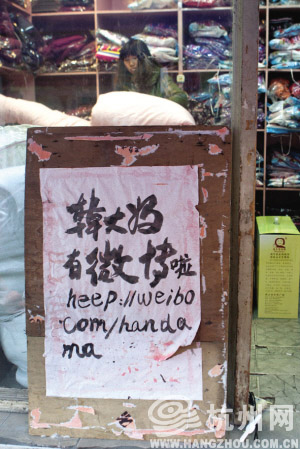 韩大妈
有微博啦
heep://weibo
com/handa
ma
杭州网
WWW.HANGZHOU.COM.CN